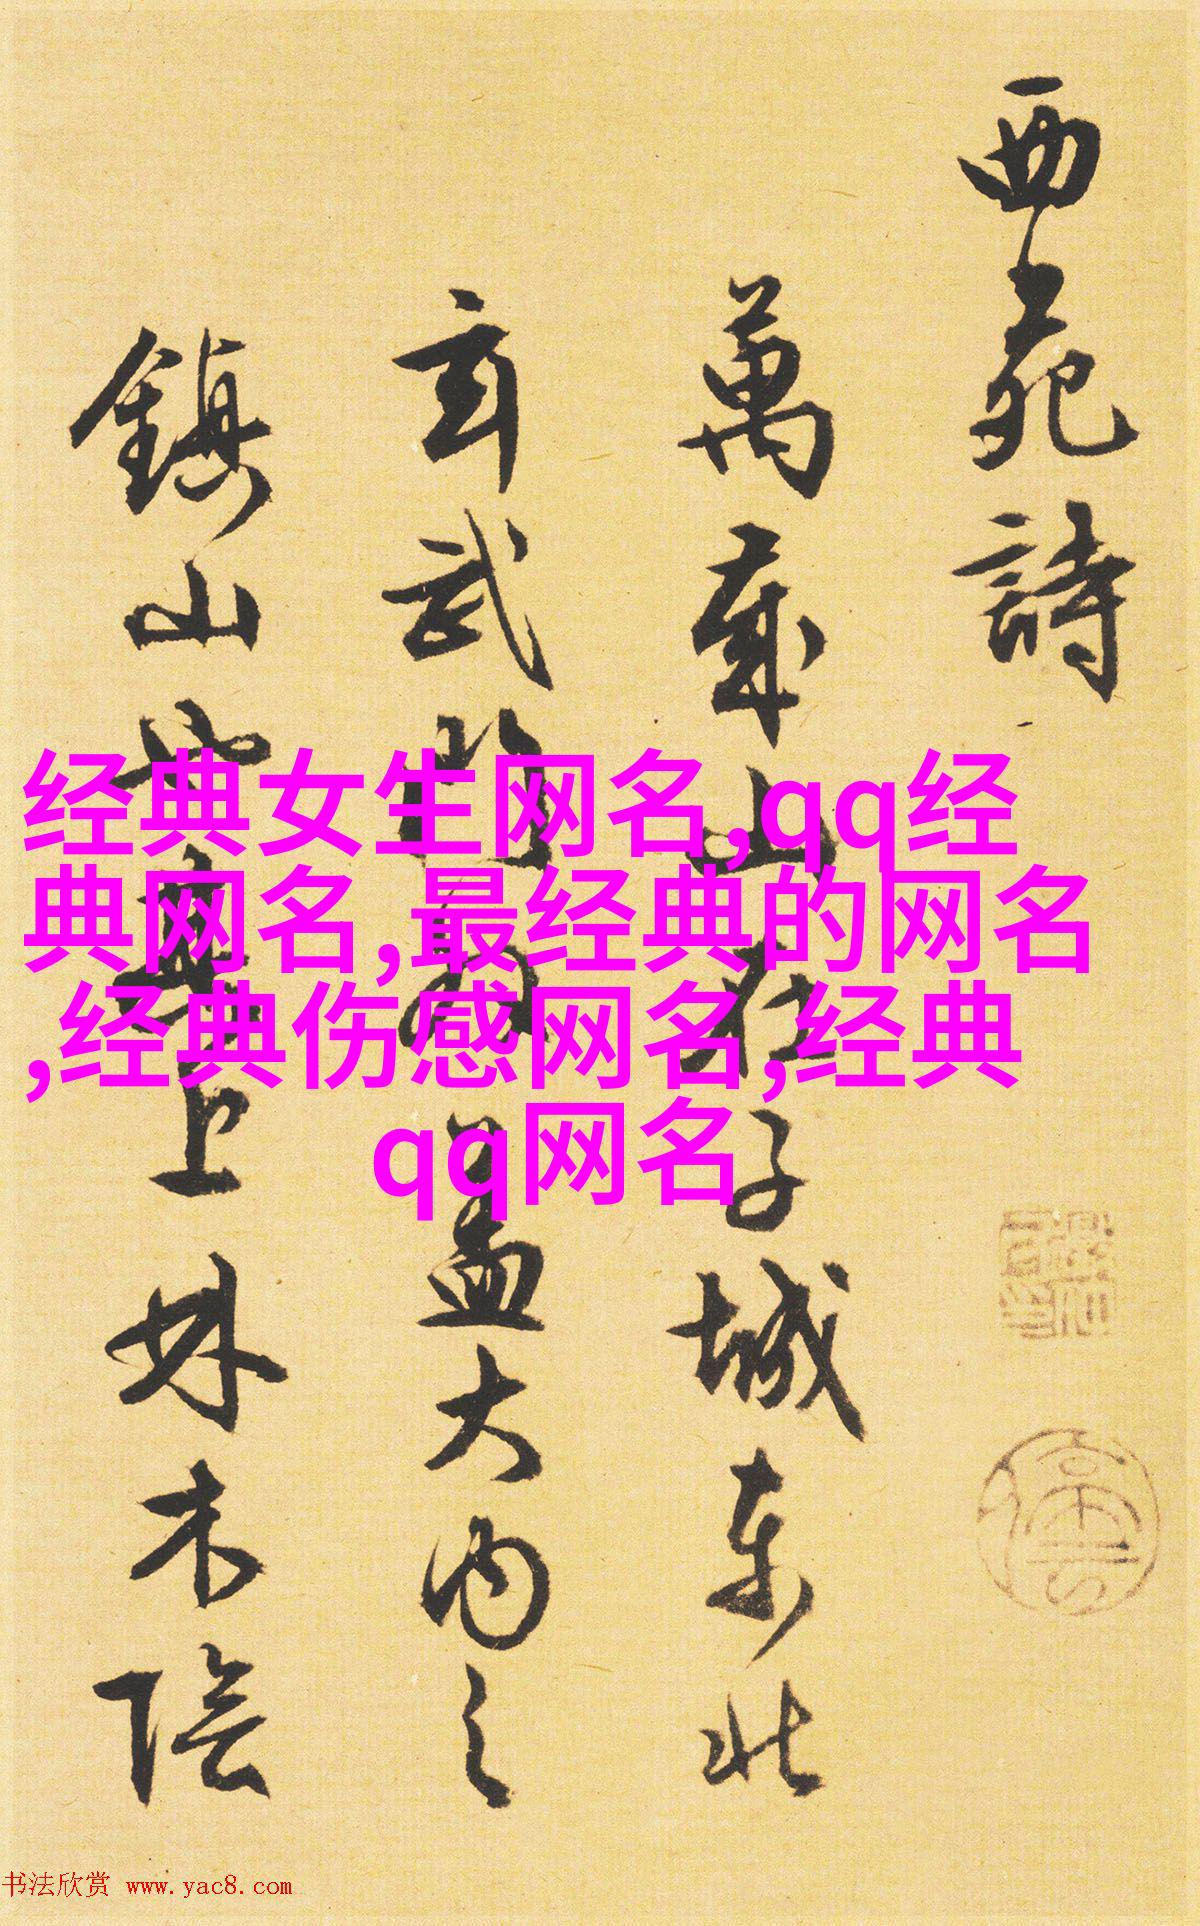 西苑詩
萬歲山在子城東北
玄武門外蓋大内之
鎮山也其上林木陰
经典女生网名,qq经
典网名,最经典的网名
,经典伤感网名,经典
qq网名
书法欣赏 www.yac8.com